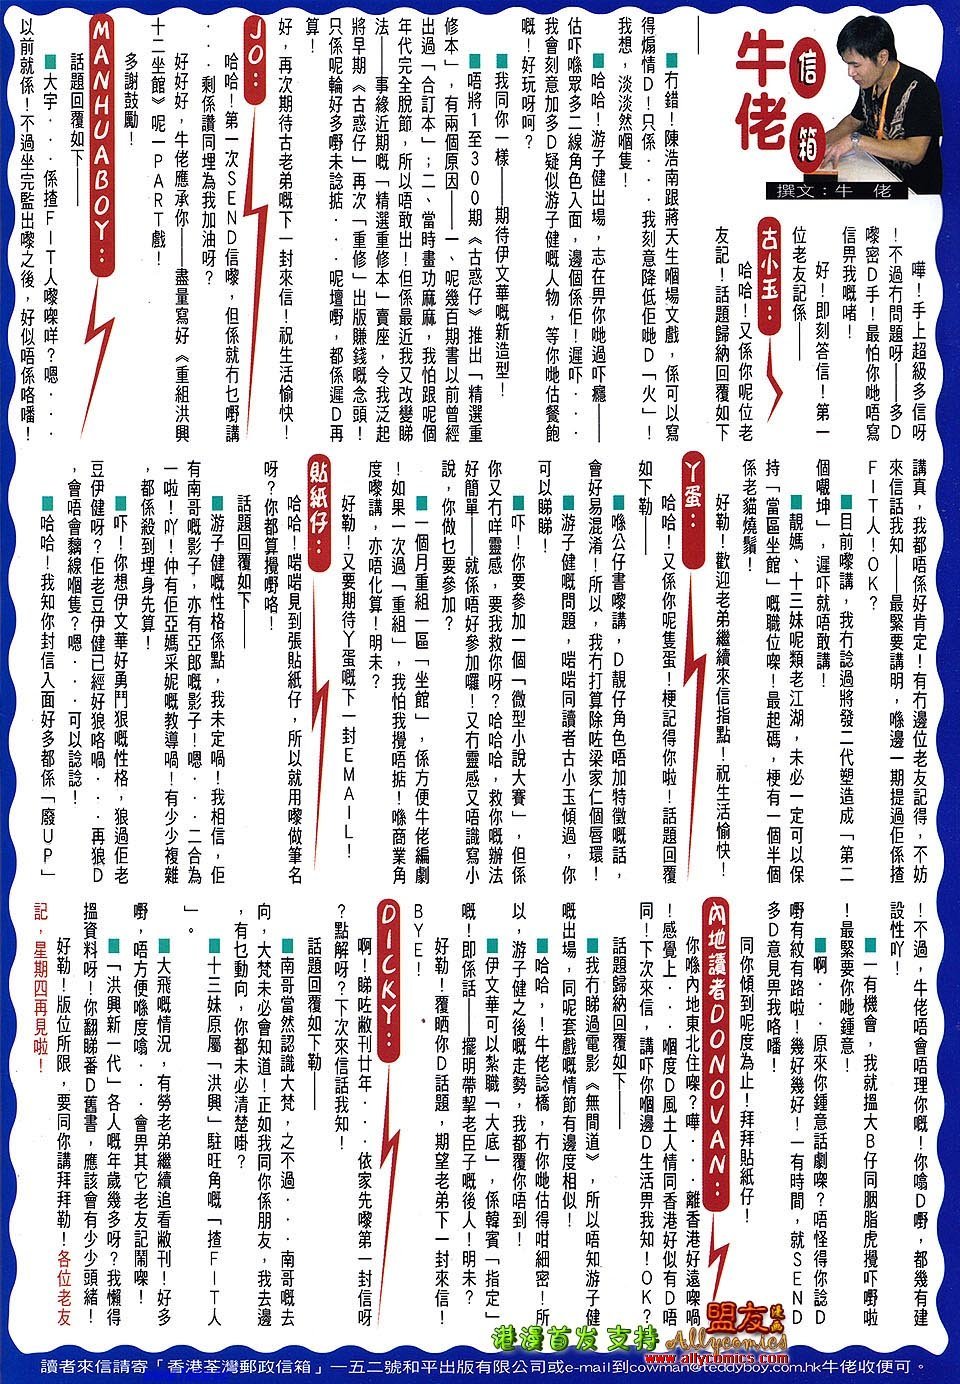 牛佬
信箱
撰文：牛　佬
嘩！手上超級多信呀
！不過冇問題呀——多D
嚟密D手！最怕你哋唔寫
信畀我嘅啫！
好！即刻答信！第一
位老友記係——
古小玉：
哈哈！又係你呢位老
友記！話題歸納回覆如下
——
■冇錯！陳浩南跟蔣天生嗰場文戲，係可以寫
得煽情D！只係．．．我刻意降低佢哋D「火」！
我想，淡淡然嗰隻！
■哈哈！游子健出場，志在畀你哋過吓癮——
估吓喺眾多二線角色入面，邊個係佢！遲吓．．．
我會刻意加多D疑似游子健嘅人物，等你哋估餐飽
嘅！好玩呀呵？
■我同你一樣——期待伊文華嘅新造型！
■唔將1至300期《古惑仔》推出「精選重
修本」，有兩個原因——一、呢幾百期書以前曾經
出過「合訂本」；二、當時畫功麻麻，我怕跟呢個
年代完全脫節，所以唔敢出！但係最近我又改變睇
法——事緣近期嘅「精選重修本」賣座，令我泛起
將早期《古惑仔》再次「重修」出版賺錢嘅念頭！
只係呢輪好多嘢未諗掂．．．呢壇嘢，都係遲D再
算！
好，再次期待古老弟嘅下一封來信！祝生活愉快！
JO：
哈哈！第一次SEND信嚟，但係就冇乜嘢講
．．．剩係讚同埋為我加油呀？
好好好，牛佬應承你——盡量寫好《重組洪興
十二坐館》呢一PART戲！
多謝鼓勵！
MANHUABOY：
話題回覆如下——
■大宇．．．係揸FIT人嚟㗎咩？嗯．．．
以前就係！不過坐完監出嚟之後，好似唔係咯噃！
講真，我都唔係好肯定！有冇邊位老友記得，不妨
來信話我知——最緊要講明，喺邊一期提過佢係揸
FIT人！OK？
■目前嚟講，我冇諗過將發二代塑造成「第二
個嚫坤」，遲吓就唔敢講！
■靚媽、十三妹呢類老江湖，未必一定可以保
持「當區坐館」嘅職位㗎！最起碼，梗有一個半個
係老貓燒鬚！
好勒！歡迎老弟繼續來信指點！祝生活愉快！
丫蛋：
哈哈！又係你呢隻蛋！梗記得你啦！話題回覆
如下勒——
■喺公仔書嚟講，D靚仔角色唔加特徵嘅話，
會好易混淆！所以，我冇打算除咗梁家仁個唇環！
■游子健嘅問題，啱啱同讀者古小玉傾過，你
可以睇睇！
■吓！你要參加一個「微型小說大賽」，但係
你又冇咩靈感，要我救你呀？哈哈哈，救你嘅辦法
好簡單——就係唔好參加囉！又冇靈感又唔識寫小
說，你做乜要參加？
■一個月重組一區「坐館」，係方便牛佬編劇
！如果一次過「重組」，我怕我攪唔掂！喺商業角
度嚟講，亦唔化算！明未？
好勒！又要期待丫蛋嘅下一封EMAIL！
貼紙仔：
哈哈！啱啱見到張貼紙仔，所以就用嚟做筆名
呀？你都算攪嘢咯！
話題回覆如下——
■游子健嘅性格係點，我未定喎！我相信，佢
有南哥嘅影子，亦有亞郎嘅影子！嗯．．．二合為
一啦！吖！仲有佢亞媽采妮嘅教導喎！有少少複雜
，都係殺到埋身先算！
■吓！你想伊文華好勇鬥狠嘅性格，狼過佢老
豆伊健呀？佢老豆伊健已經好狼咯喎．．．再狼D
，會唔會黐線嗰隻？嗯．．．可以諗諗！
■哈哈！我知你封信入面好多都係「廢UP」
！不過，牛佬唔會唔理你嘅！你噏D嘢，都幾有建
設性吖！
■一有機會，我就搵大B仔同胭脂虎攪吓嘢啦
！最緊要你哋鍾意！
■啊．．．原來你鍾意話劇㗎？唔怪得你諗D
嘢有紋有路啦！幾好幾好！一有時間，就SEND
多D意見畀我咯噃！
同你傾到呢度為止！拜拜貼紙仔！
內地讀者DONOVAN：
你喺內地東北住㗎？嘩．．．離香港好遠㗎喎
！感覺上．．．嗰度D風土人情同香港好似有D唔
同！下次來信，講吓你嗰邊D生活畀我知！OK？
話題歸納回覆如下——
■我冇睇過電影《無間道》，所以唔知游子健
嘅出場，同呢套戲嘅情節有邊度相似！
哈哈，！牛佬諗橋，冇你哋估得咁細密！所
以，游子健之後嘅走勢，我都覆你唔到！
■伊文華可以紮職「大底」，係韓賓「指定」
嘅！即係話——擺明帶挈老臣子嘅後人！明未？
好勒！覆晒你D話題，期望老弟下一封來信！
BYE！
DICKY：
啊！睇咗敝刊廿年．．．依家先嚟第一封信呀
？點解呀？下次來信話我知！
話題回覆如下勒——
■南哥當然認識大梵，之不過．．．南哥嘅去
向，大梵未必會知道！正如我同你係朋友，我去邊
，有乜動向，你都未必清楚啩？
■十三妹原屬「洪興」駐旺角嘅「揸FIT人
」。
■大飛嘅情況，有勞老弟繼續追看敝刊！好多
嘢，唔方便喺度噏．．．會畀其它老友記鬧㗎！
■「洪興新一代」各人嘅年歲幾多呀？我懶得
搵資料呀！你翻睇番D舊書，應該會有少少頭緒！
好勒！版位所限，要同你講拜拜勒！各位老友
記，星期四再見啦！
港漫首发 支持
盟友漫画
Allycomics
www.allycomics.com
讀者來信請寄「香港荃灣郵政信箱」一五二號和平出版有限公司或e-mail到cowman@teddyboy.com.hk牛佬收便可。